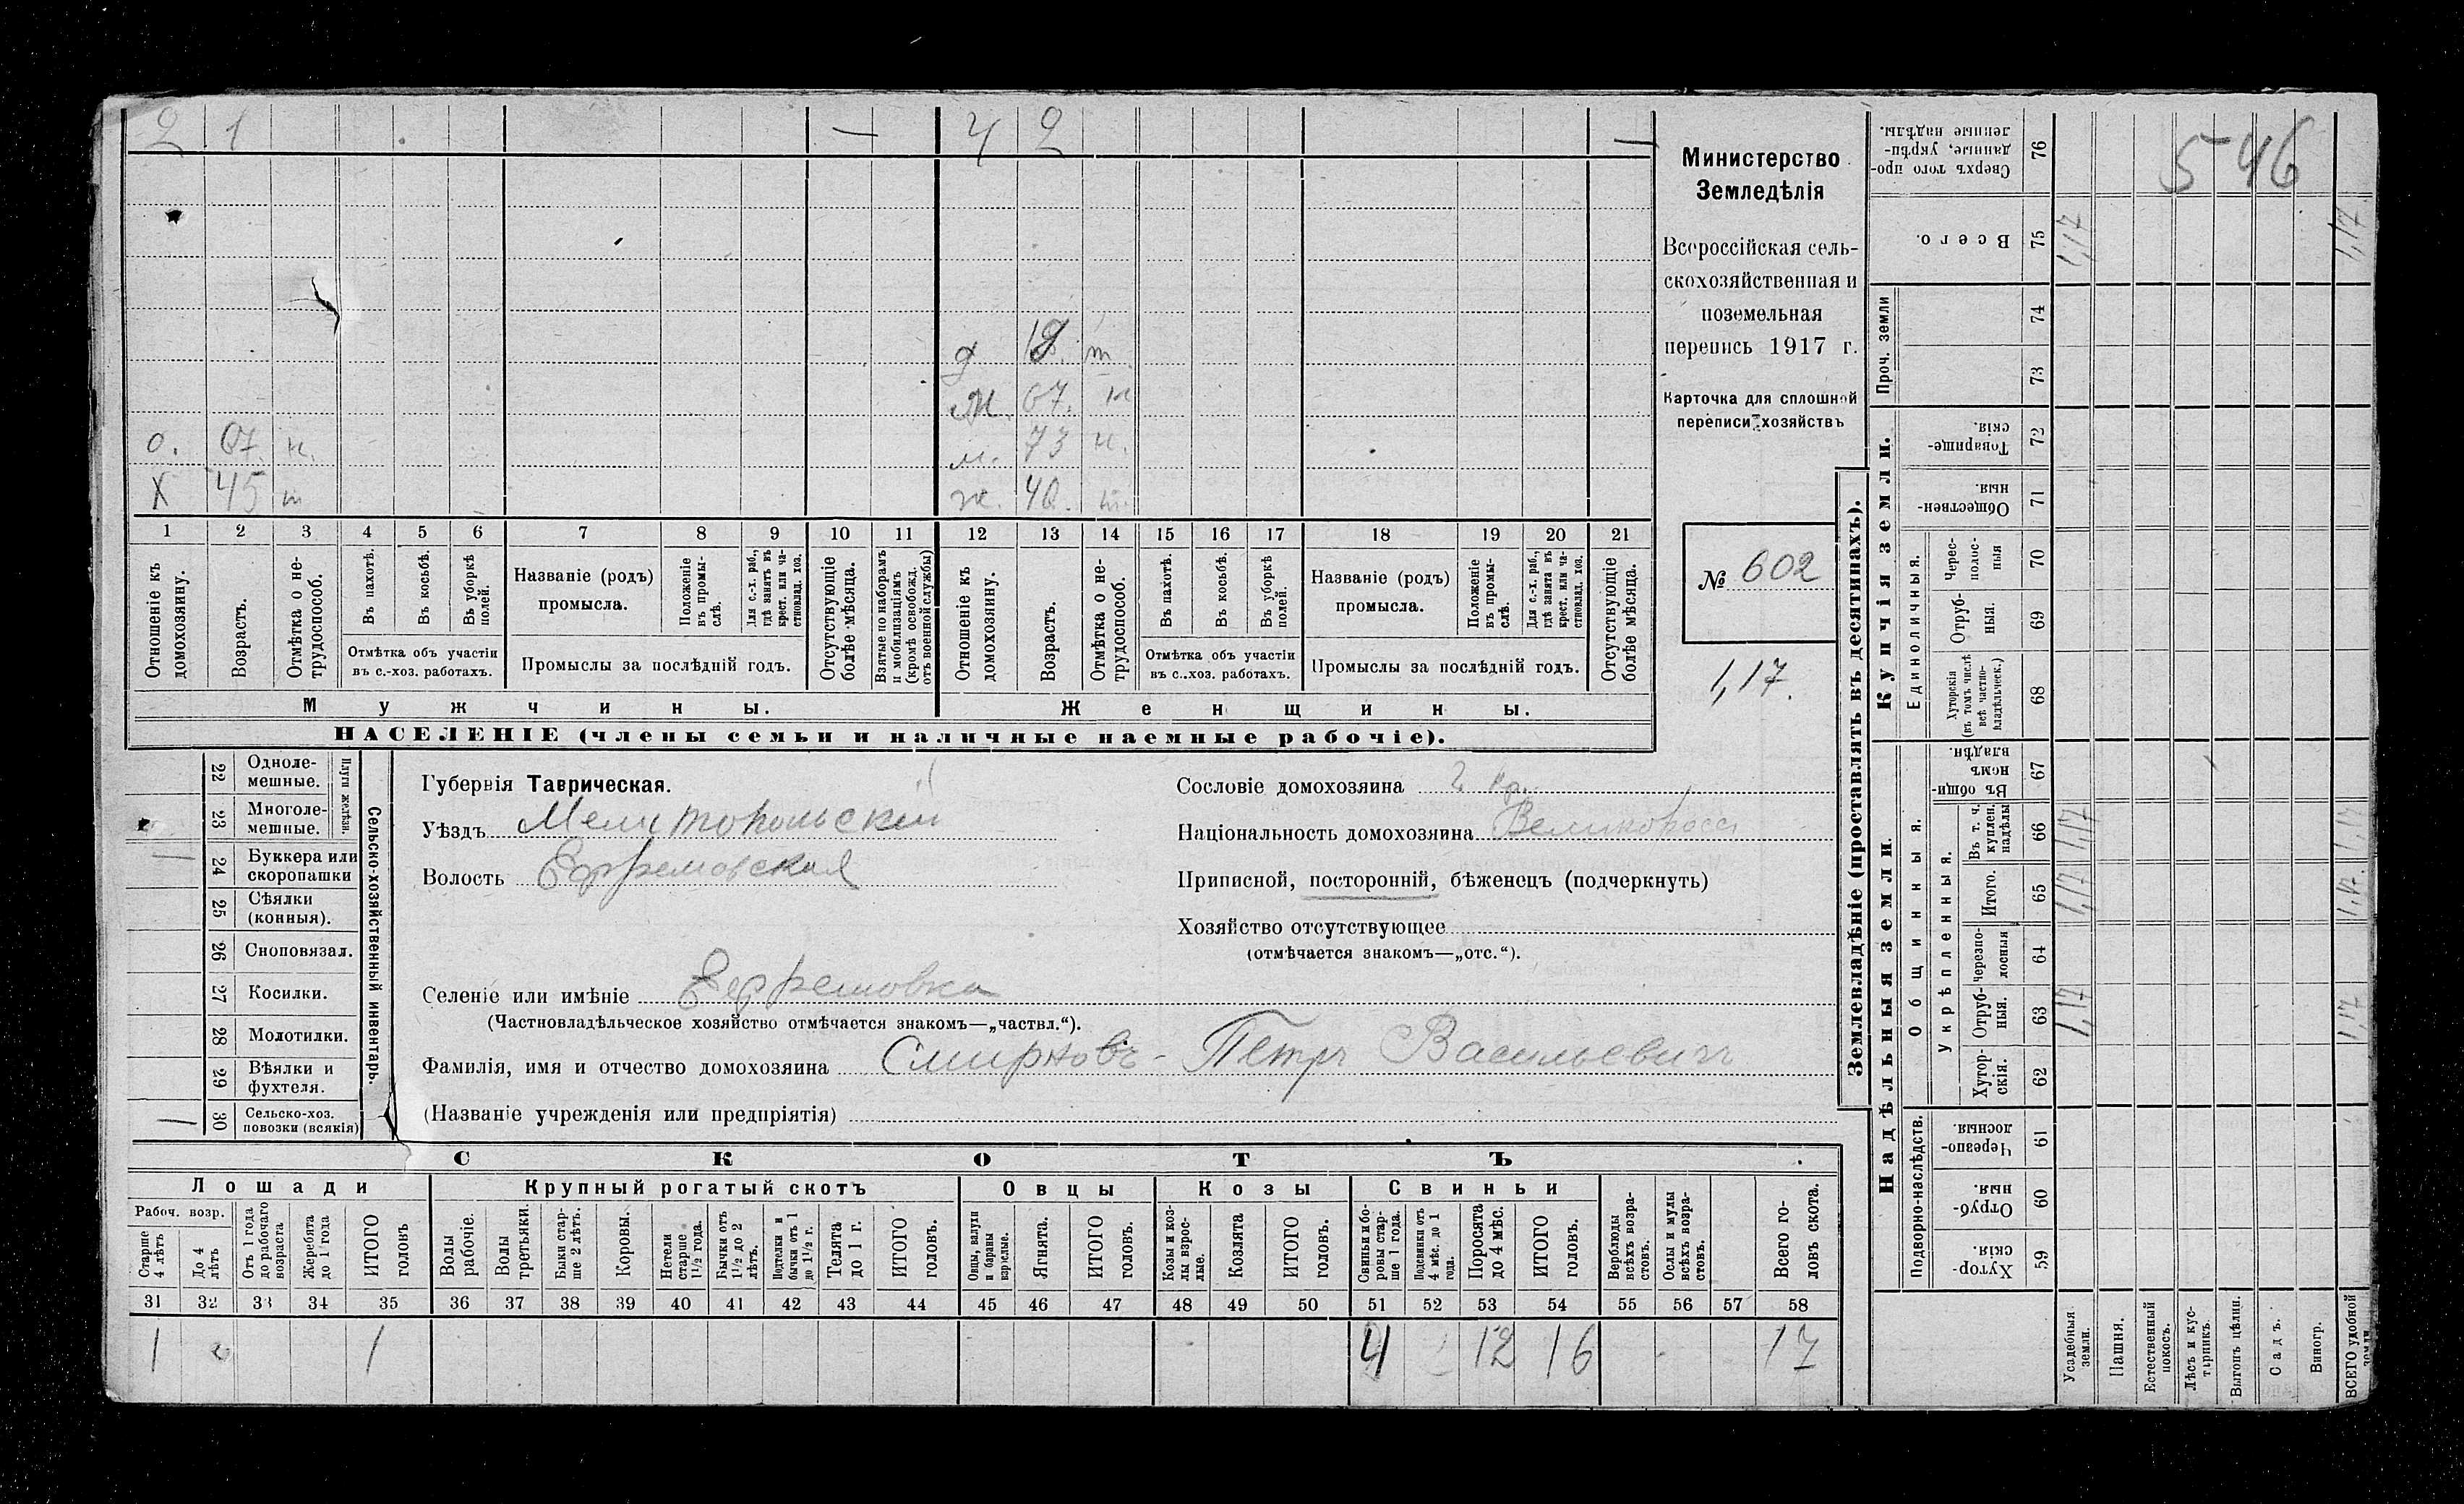 2 1 — 4 2 —
д 19 т
ж. 67. н
о. 67. н. м. 73 н.
Х 45 т ж. 40. т.
1 2 3 4 5 6 7 8 9 10 11 12 13 14 15 16 17 18 19 20 21
Отношеніе къ домохозяину.
Возрастъ.
Отмѣтка о не-трудоспособ.
Въ пахотѣ.
Въ косьбѣ.
Въ уборкѣ полей.
Отмѣтка объ участіи
въ с.-хоз. работахъ.
Названіе (родъ)
промысла.
Положеніе въ промы-слѣ.
Для с.-х. раб., гдѣ занятъ въ крест. или ча-стновлад. хоз.
Промыслы за послѣдній годъ.
Отсутствующіе болѣе мѣсяца.
Взятые по наборамъ и мобилизаціямъ (кромѣ освобожд. отъ военной службы)
Отношеніе къ домохозяину.
Возрастъ.
Отмѣтка о не-трудоспособ.
Въ пахотѣ.
Въ косьбѣ.
Въ уборкѣ полей.
Отмѣтка объ участіи
въ с.-хоз. работахъ.
Названіе (родъ)
промысла.
Положеніе въ промы-слѣ.
Для с.-х. раб., гдѣ занята въ крест. или ча-стновлад. хоз.
Промыслы за послѣдній годъ.
Отсутствующіе болѣе мѣсяца.
Мужчины.
Женщины.
НАСЕЛЕНІЕ (члены семьи и наличные наемные рабочіе).
Министерство
Земледѣлія
Всероссійская сель-
скохозяйственная и
поземельная
перепись 1917 г.
Карточка для сплошной
переписи хозяйствъ
№ 602
1,17.
22 Одноле-мешные.
23 Многоле-мешные.
Плуги желѣзн.
24 Буккера или скоропашки
25 Сѣялки (конныя).
26 Сноповязал.
27 Косилки.
28 Молотилки.
29 Вѣялки и фухтеля.
30 Сельско-хоз. повозки (всякія)
Сельско-хозяйственный инвентарь.
Губернія Таврическая.
Уѣздъ Мелитопольскій
Волость Ефремовская
Селеніе или имѣніе Ефремовка
(Частновладѣльческое хозяйство отмѣчается знакомъ—„частвл.“).
Фамилія, имя и отчество домохозяина Смирновъ - Петръ Васильевичъ
(Названіе учрежденія или предпріятія)
Сословіе домохозяина
Національность домохозяина Великоросс
Приписной, посторонній, бѣженецъ (подчеркнуть)
Хозяйство отсутствующее
(отмѣчается знакомъ—„отс.“).
СКОТЪ
Лошади Крупный рогатый скотъ Овцы Козы Свиньи
Рабоч. возр.
Старше 4 лѣтъ
До 4 лѣтъ
Отъ 1 года до рабочаго возраста
Жеребята до 1 года
ИТОГО головъ
Волы рабочіе.
Волы третьяки.
Быки стар-ше 2 лѣтъ.
Коровы.
Нетели старше 1½ года.
Бычки отъ 1½ до 2 лѣтъ.
Подтелки и бычки отъ 1 до 1½ г.
Телята до 1 г.
ИТОГО головъ.
Овцы, валухи и бараны взрослые.
Ягнята.
ИТОГО головъ.
Козы и коз-лы взрос-лые.
Козлята
ИТОГО головъ.
Свиньи и бо-ровы стар-ше 1 года.
Подсвинки отъ 4 мѣс. до 1 года.
Поросята до 4 мѣс.
ИТОГО головъ.
Верблюды всѣхъ возра-стовъ.
Ослы и мулы всѣхъ возра-стовъ.
Всего го-ловъ скота.
31 32 33 34 35 36 37 38 39 40 41 42 43 44 45 46 47 48 49 50 51 52 53 54 55 56 57 58
1 1 4 12 16 17
Землевладѣніе (проставлять въ десятинахъ).
Надѣльныя земли.
Купчія земли.
Проч. земли
Подворно-наслѣдств.
Общинныя.
Укрѣпленныя.
Единоличныя.
Сверхъ того про-данные, укрѣп-ленные надѣлы. 76
Всего. 75
74
73
Товарище-скія. 72
Обществен-ныя. 71
Черес-полос-ныя 70
Отруб-ныя. 69
Хуторскія (въ томъ числѣ всѣ частно-владѣльческ.) 68
Въ общи-номъ владѣн. 67
Въ т. ч. куплен. надѣлы 66
Итого. 65
черезпо-лосныя 64
Отруб-ныя. 63
Хутор-скія. 62
Черезпо-лосныя. 61
Отруб-ныя. 60
Хутор-скія. 59
546
1,17 1,17
1,17 1,17
1,17 1,17
1,17 1,17
Усадебныя земли.
Пашня.
Естественный покосъ.
Лѣсъ и кус-тарникъ.
Выгонъ цѣлин.
Садъ.
Виногр.
ВСЕГО удобной земли